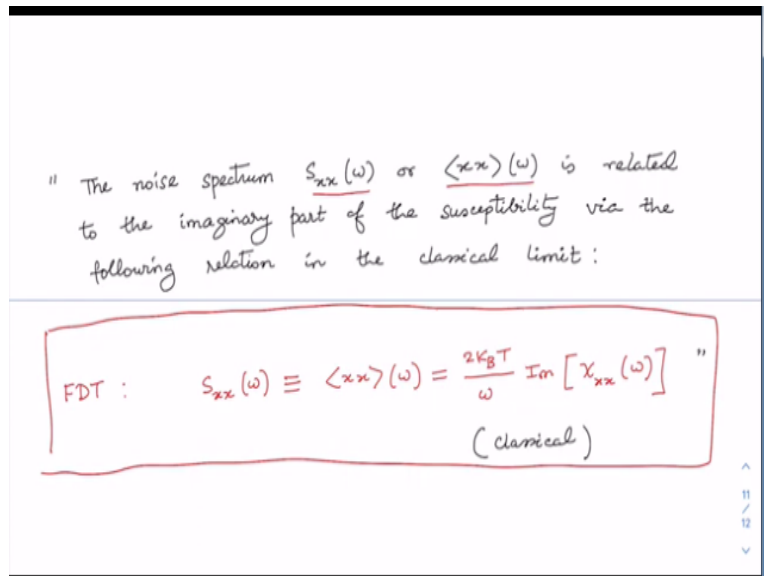 " The noise spectrum Sₓₓ(ω) or ⟨xx⟩(ω) is related
to the imaginary part of the susceptibility via the
following relation in the classical limit :
FDT : Sₓₓ(ω) ≡ ⟨xx⟩(ω) = 2K_BT/ω Im [χₓₓ(ω)] "
(classical)
11
/
12